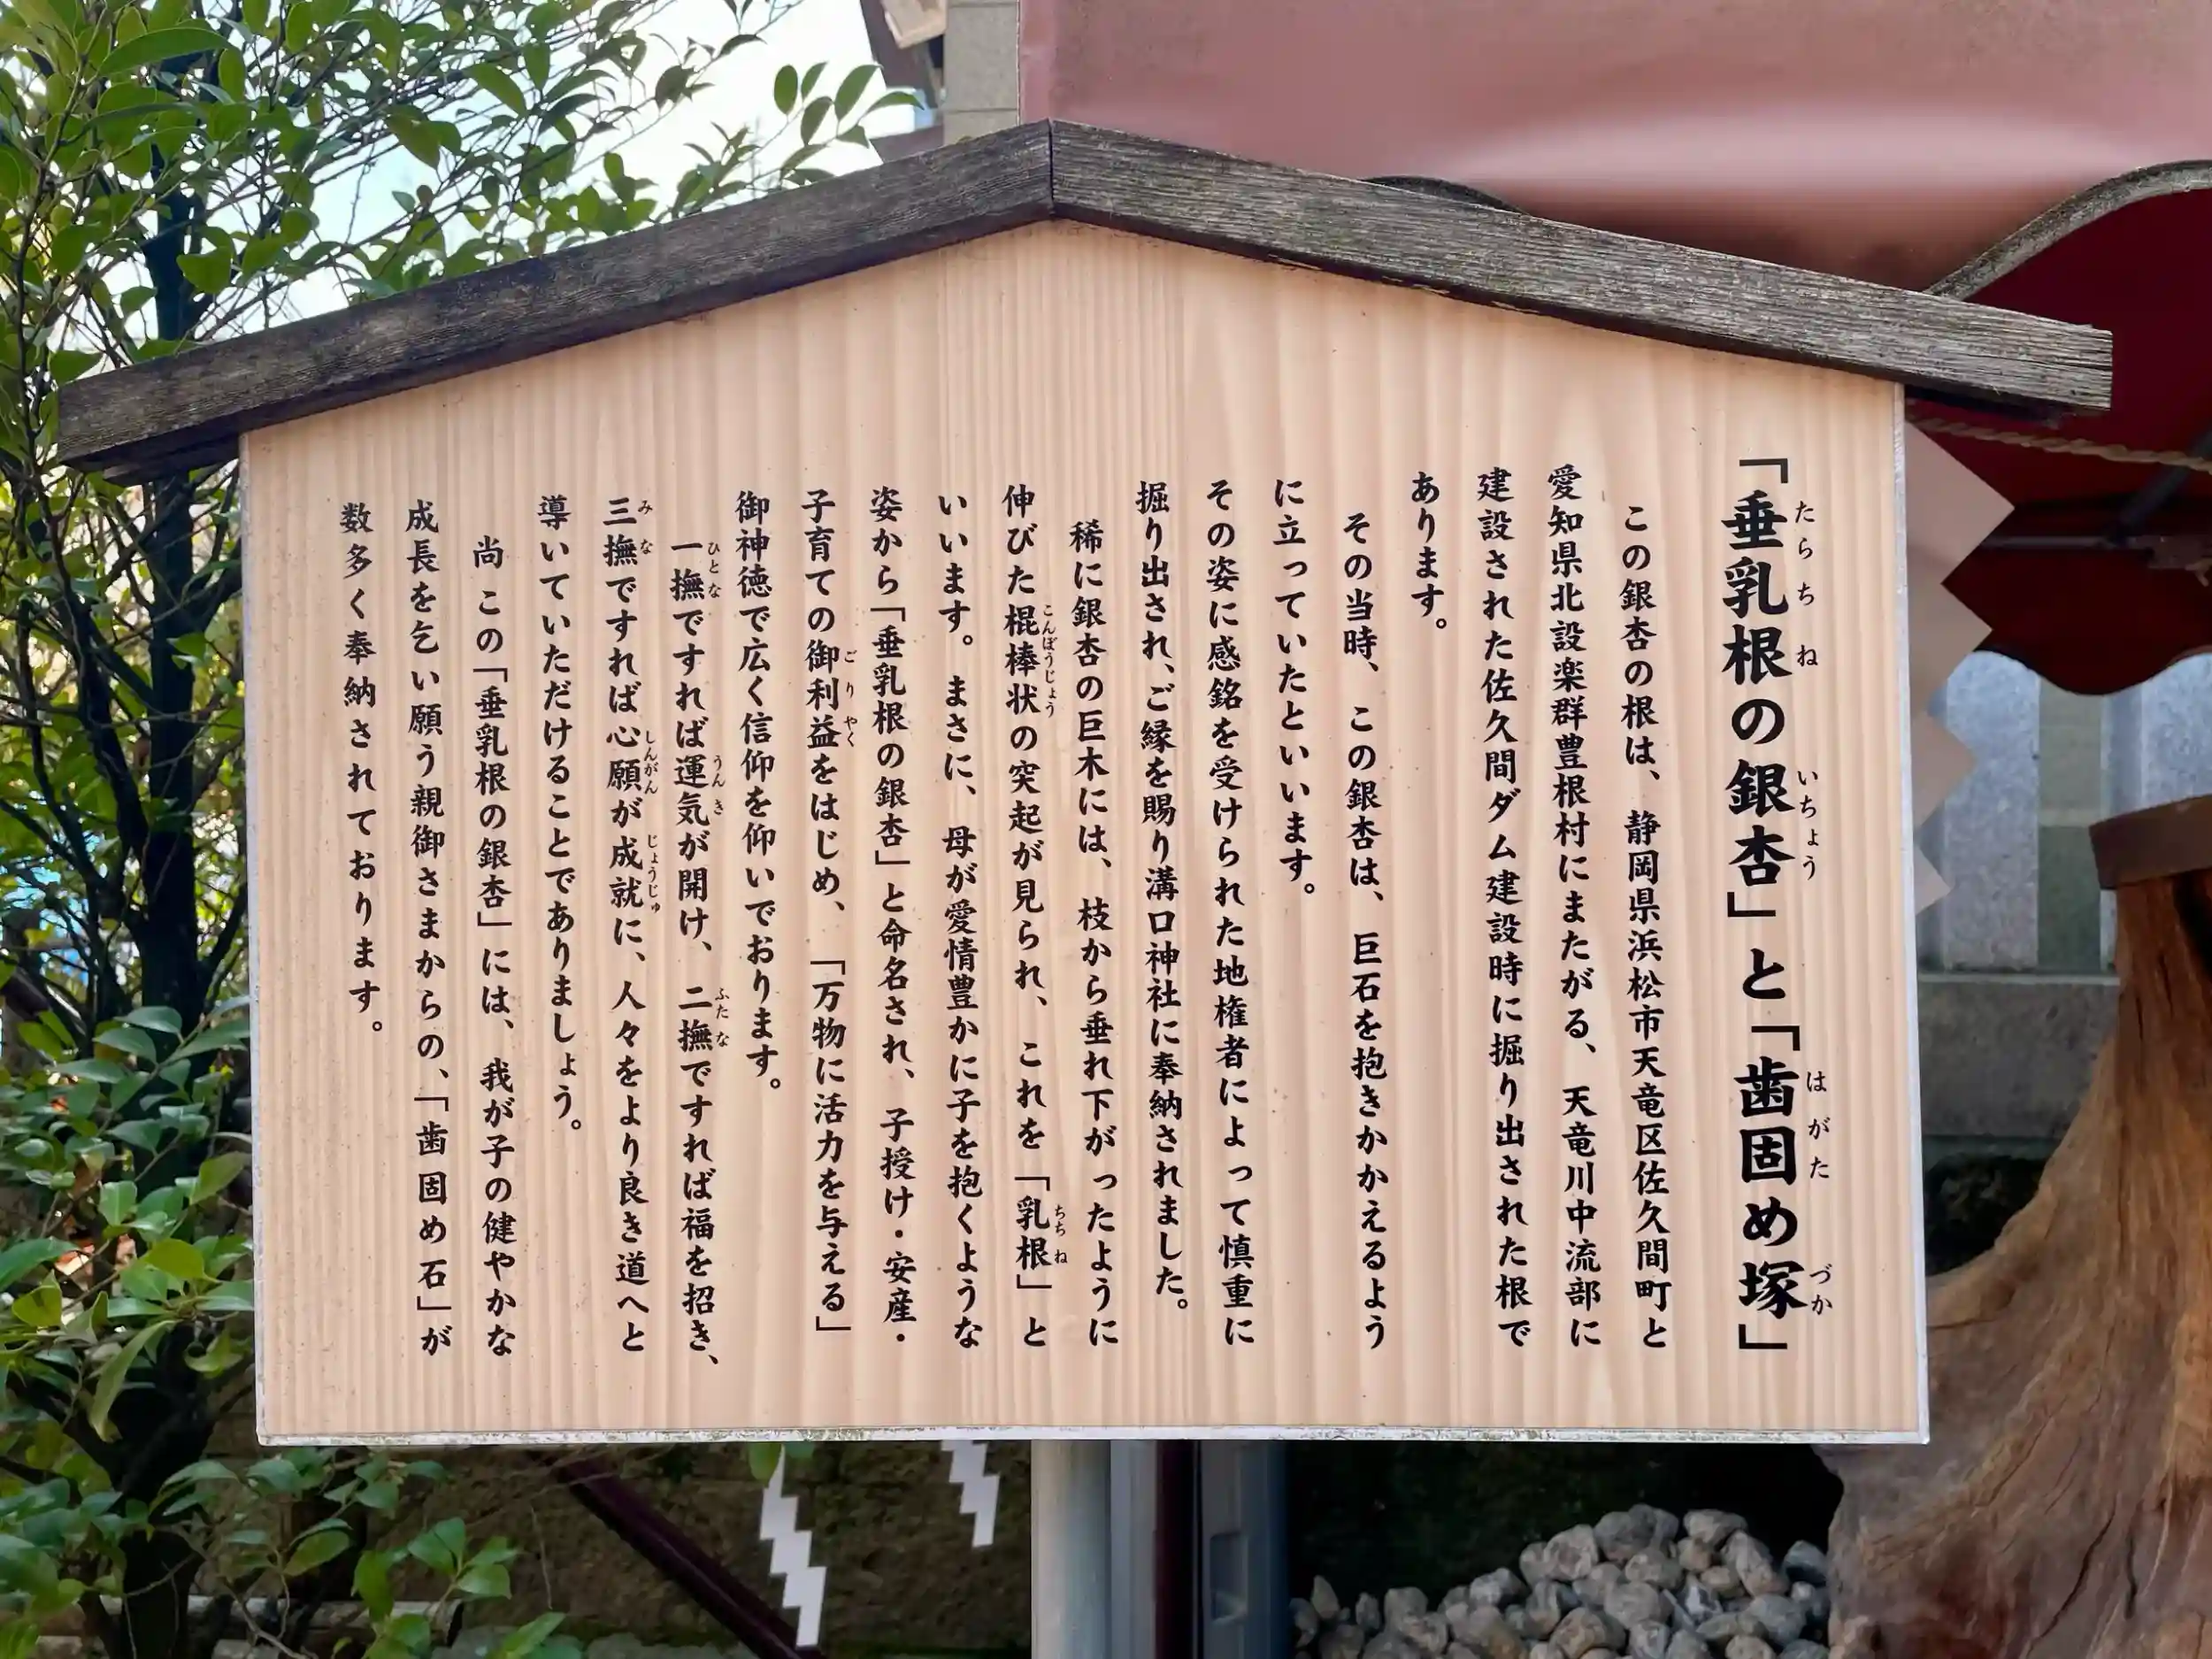 「垂乳根の銀杏」と「歯固め塚」
この銀杏の根は、静岡県浜松市天竜区佐久間町と
愛知県北設楽群豊根村にまたがる、天竜川中流部に
建設された佐久間ダム建設時に掘り出された根で
あります。
その当時、この銀杏は、巨石を抱きかかえるよう
に立っていたといいます。
その姿に感銘を受けられた地権者によって慎重に
掘り出され、ご縁を賜り溝口神社に奉納されました。
稀に銀杏の巨木には、枝から垂れ下がったように
伸びた棍棒状の突起が見られ、これを「乳根」と
いいます。まさに、母が愛情豊かに子を抱くような
姿から「垂乳根の銀杏」と命名され、子授け・安産・
子育ての御利益をはじめ、「万物に活力を与える」
御神徳で広く信仰を仰いでおります。
一撫ですれば運気が開け、二撫ですれば福を招き、
三撫ですれば心願が成就に、人々をより良き道へと
導いていただけることでありましょう。
尚この「垂乳根の銀杏」には、我が子の健やかな
成長を乞い願う親御さまからの、「歯固め石」が
数多く奉納されております。